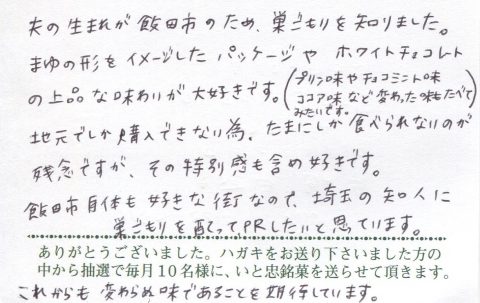 夫の生まれが飯田市のため、巣ごもりを知りました。
まゆの形をイメージしたパッケージや ホワイトチョコレート
の上品な味わいが大好きです。(プリン味やチョコミント味
ココア味など変わった味もたべて
みたいです。)
地元でしか購入できない為、たまにしか食べられないのが
残念ですが、その特別感も含め好きです。
飯田市自体も好きな街なので、埼玉の知人に
巣ごもりを配ってPRしたいと思っています。
ありがとうございました。ハガキをお送り下さいました方の
中から抽選で毎月10名様に、いと忠銘菓を送らせて頂きます。
これからも変わらぬ味であることを期待しています。